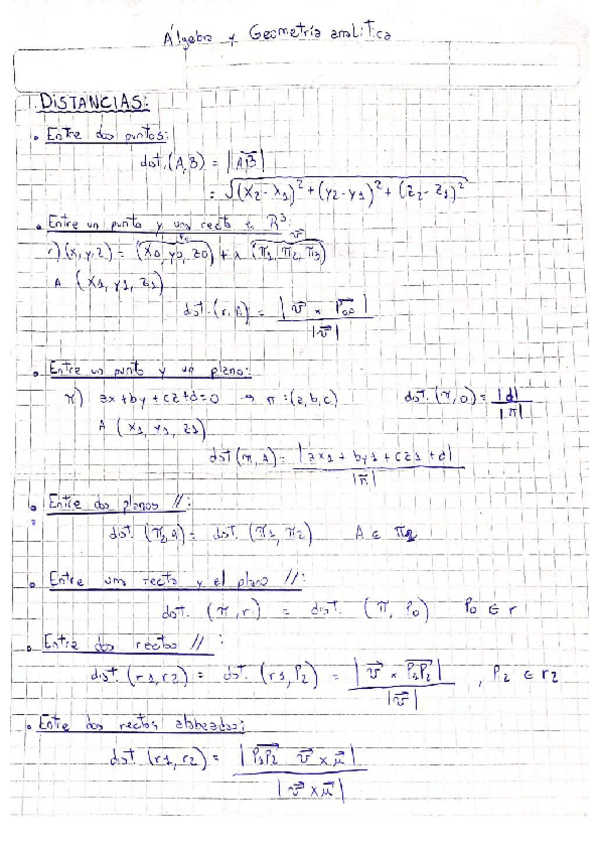 Álgebra y Geometría analítica
DISTANCIAS:
• Entre dos puntos:
dist.(A,B) = |AB|
= √(x2-x1)² + (y2-y1)² + (z2-z1)²
• Entre un punto y una recta en R³:
r)(x,y,z) = (x0,y0,z0) + λ (π1,π2,π3)
A (x1,y1,z1)
dist.(r,A) = |v⃗ x P0| / |v⃗|
• Entre un punto y un plano:
π) ax+by+cz+d=0 → n:(a,b,c) dist.(π,0) = |d| / |n⃗|
A (x1,y1,z1)
dist(π,A) = |ax1 + by1 + cz1 + d| / |n⃗|
• Entre dos planos //:
dist.(π1,A) = dist.(π1,π2) A ∈ π2
• Entre una recta y el plano //:
dist. (π,r) = dist. (π,P0) P0 ∈ r
• Entre dos rectas // :
dist.(r1,r2) = dist.(r1,P2) = |v⃗ x P1P2| / |v⃗| , P2 ∈ r2
• Entre dos rectas alabeadas:
dist.(r1,r2) = |P1P2 v⃗ x μ⃗| / |v⃗ x μ⃗|